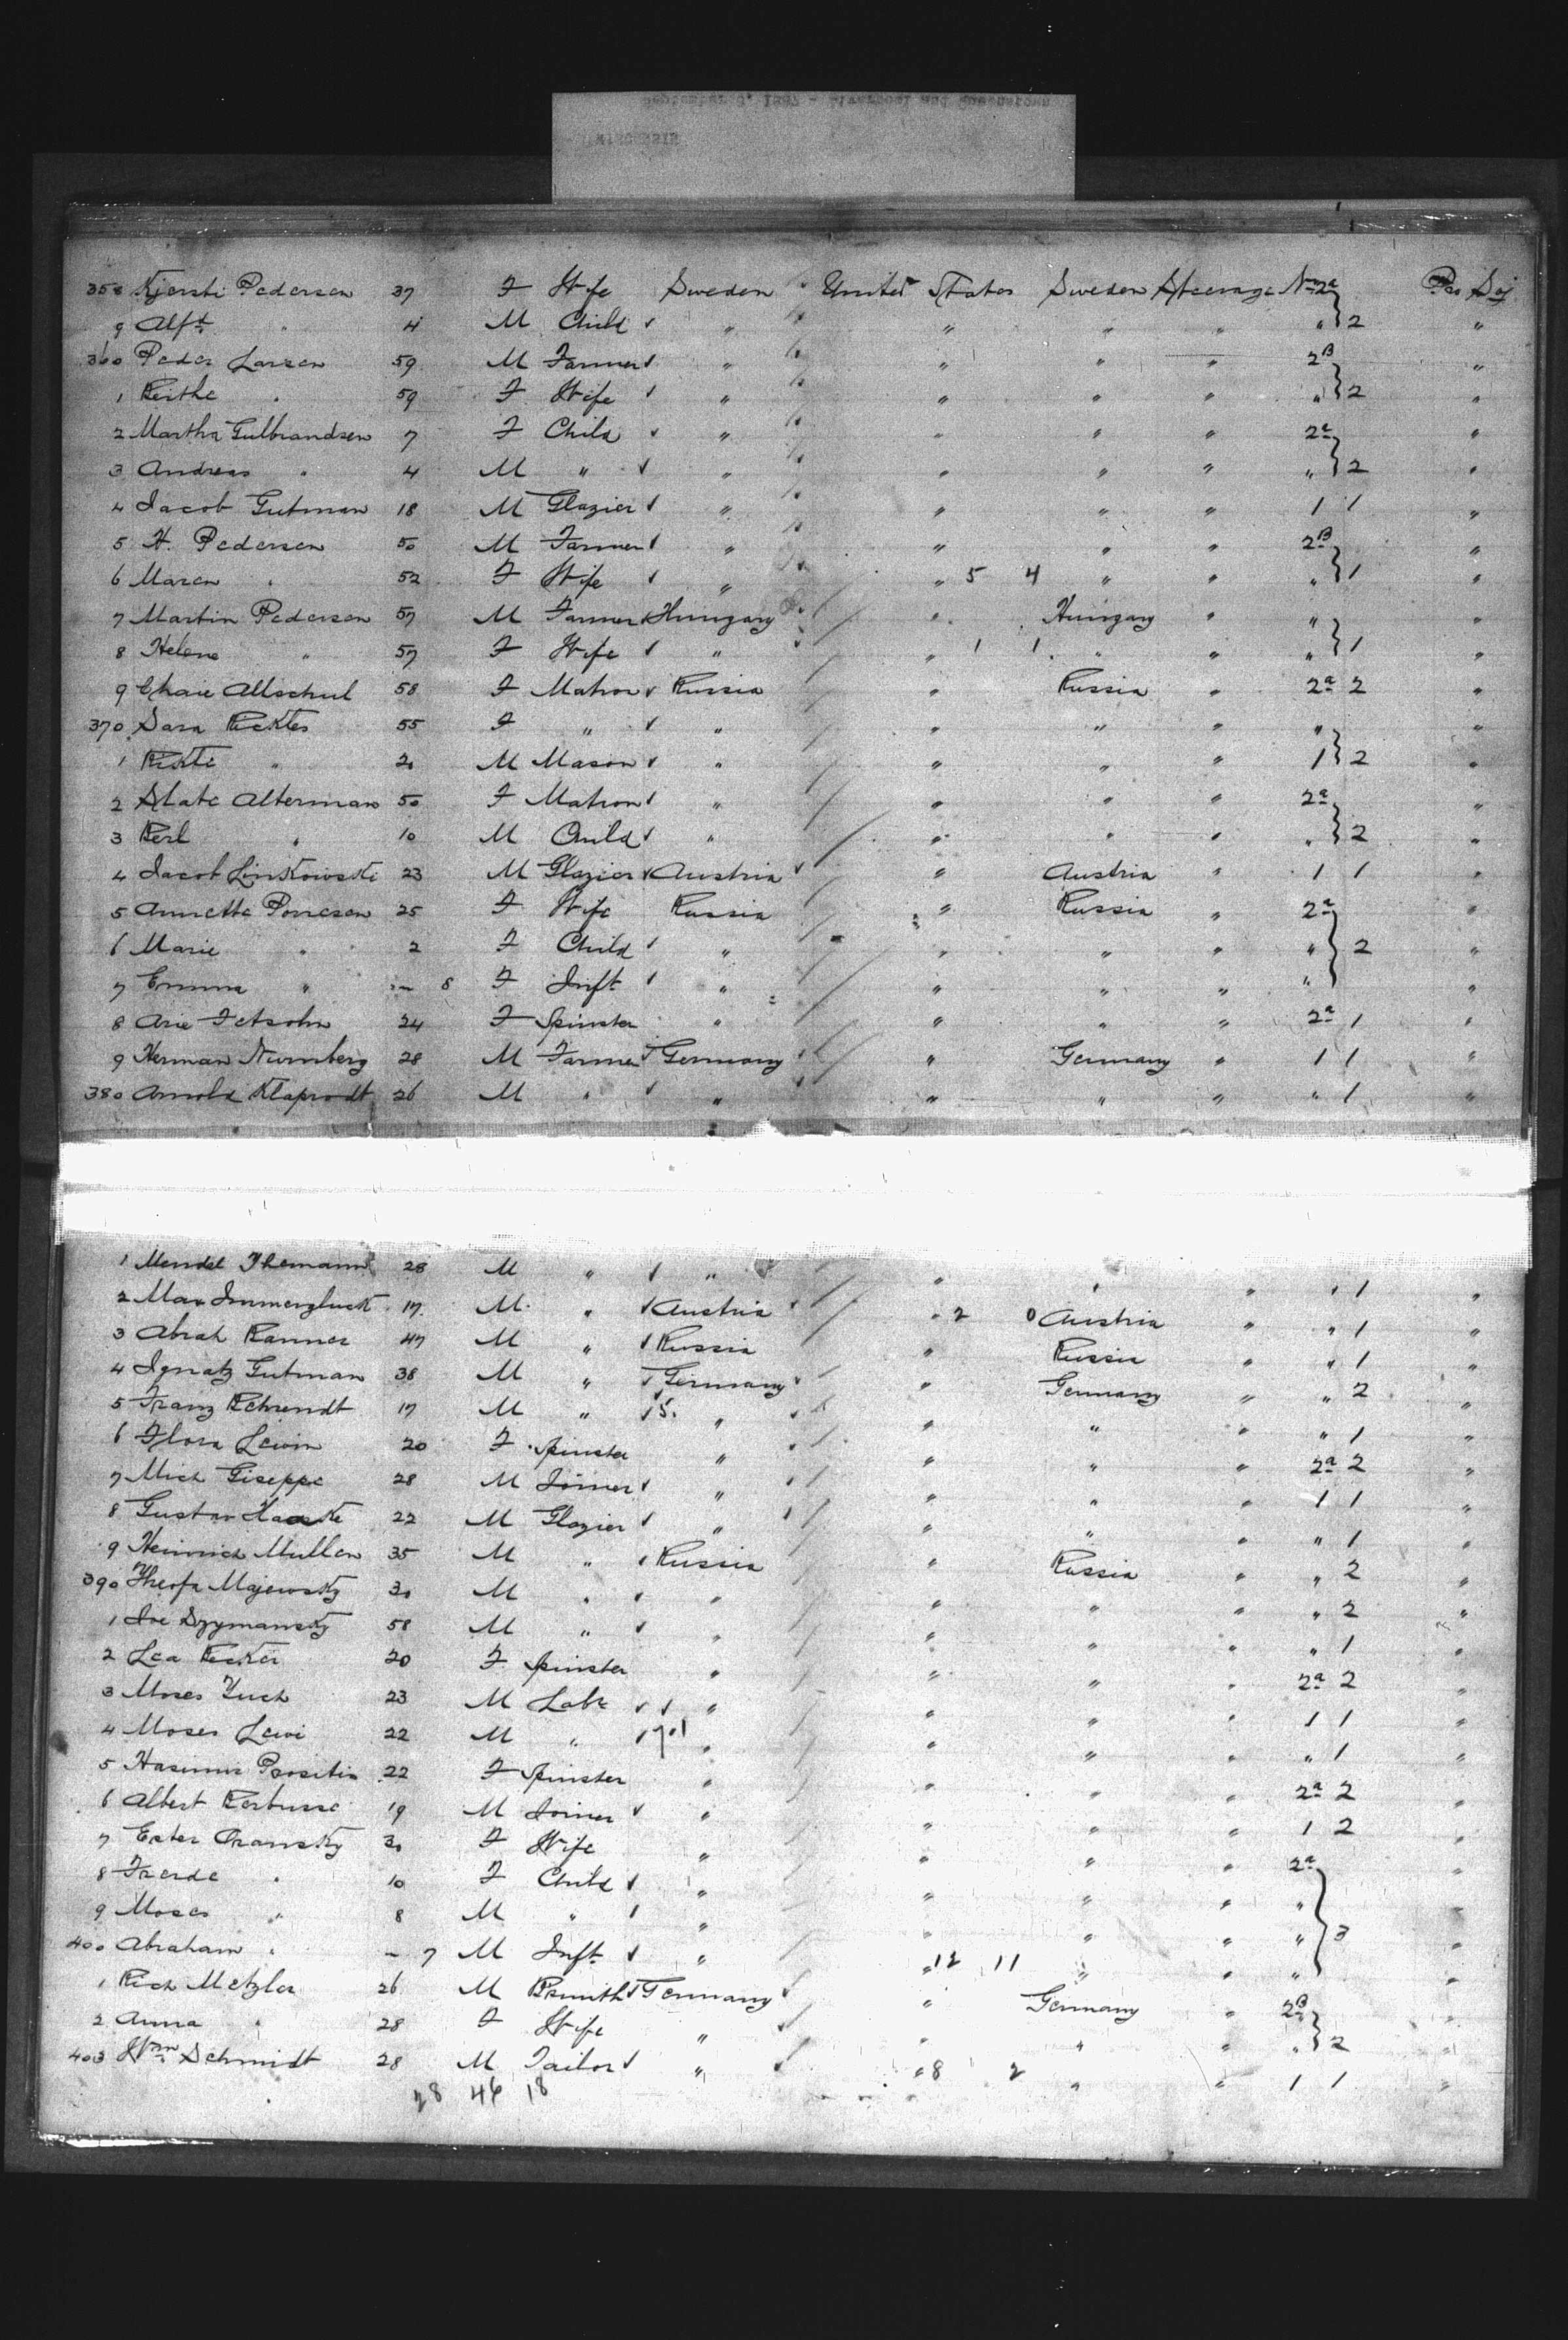 358 Kjersti Pedersen 37 F Wife Sweden United States Sweden Steerage No 2a Pro Soj
9 Alfd " 4 M Child " " " " " 2 "
360 Peder Larsen 59 M Farmer " " " " 2B "
1 Berthe " 59 F Wife " " " " " 2 "
2 Martha Gulbrandsen 7 F Child " " " " 2a "
3 Andreas " 4 M " " " " " " 2 "
4 Jacob Gutman 18 M Glazier " " " " 1 1 "
5 H. Pedersen 50 M Farmer " " " " 2B "
6 Maren " 52 F Wife " " 5 4 " " " 1 "
7 Martin Pedersen 57 M Farmer Hungary " Hungary " " "
8 Helene " 57 F Wife " " 1 1 " " " 1 "
9 Chaie Altschul 58 F Matron Russia " Russia " 2a 2 "
370 Sara 55 F " " " " " " "
1 " 20 M Mason " " " " 1 2 "
2 Slate Alterman 50 F Matron " " " " 2a "
3 Berl " 10 M Child " " " " " 2 "
4 Jacob Linkowski 23 M Glazier Austria " Austria " 1 1 "
5 Annetta 25 F Wife Russia " Russia " 2a "
6 Marie " 2 F Child " " " " " 2 "
7 Emma " — 8 F Inft " " " " " "
8 Arie 24 F Spinster " " " " 2a 1 "
9 Herman Nurnberg 28 M Farmer Germany " Germany " 1 1 "
380 Arnold Klaprodt 26 M " " " " " " 1 "
1 Mendel 28 M " " " " " " 1 "
2 Max Immergluck 17 M " Austria " 2 0 Austria " " 1 "
3 Abrah 47 M " Russia " Russia " " 1 "
4 Ignatz Gutman 38 M " Germany " Germany " " 2 "
5 Franz Behrendt 17 M " 5 " " " " " 1 "
6 Flora Lewin 20 F Spinster " " " " 2a 2 "
7 Mich Giseppe 28 M Joiner " " " " 1 1 "
8 Gustav 22 M Glazier " " " " " 1 "
9 Heinrich Mullen 35 M " Russia " Russia " " 2 "
390 Majewsky 30 M " " " " " " 2 "
1 Szymansky 58 M " " " " " " 1 "
2 Lea 20 F Spinster " " " " 2a 2 "
3 Moses 23 M Labr " " " " 1 1 "
4 Moses Lewi 22 M " " " " " " 1 "
5 22 F Spinster " " " " 2a 2 "
6 Albert 19 M Joiner " " " " 1 2 "
7 Ester 30 F Wife " " " " 2a "
8 " 10 F Child " " " " " "
9 Moses " 8 M " " " " " " 3 "
400 Abraham " — 7 M Inft " " 12 11 " " " "
1 Rich Metzler 26 M Bsmith Germany " Germany " 2B "
2 Anna " 28 F Wife " " " " " 2 "
403 Wm Schmidt 28 M Tailor " " 8 2 " " 1 1 "
28 46 18